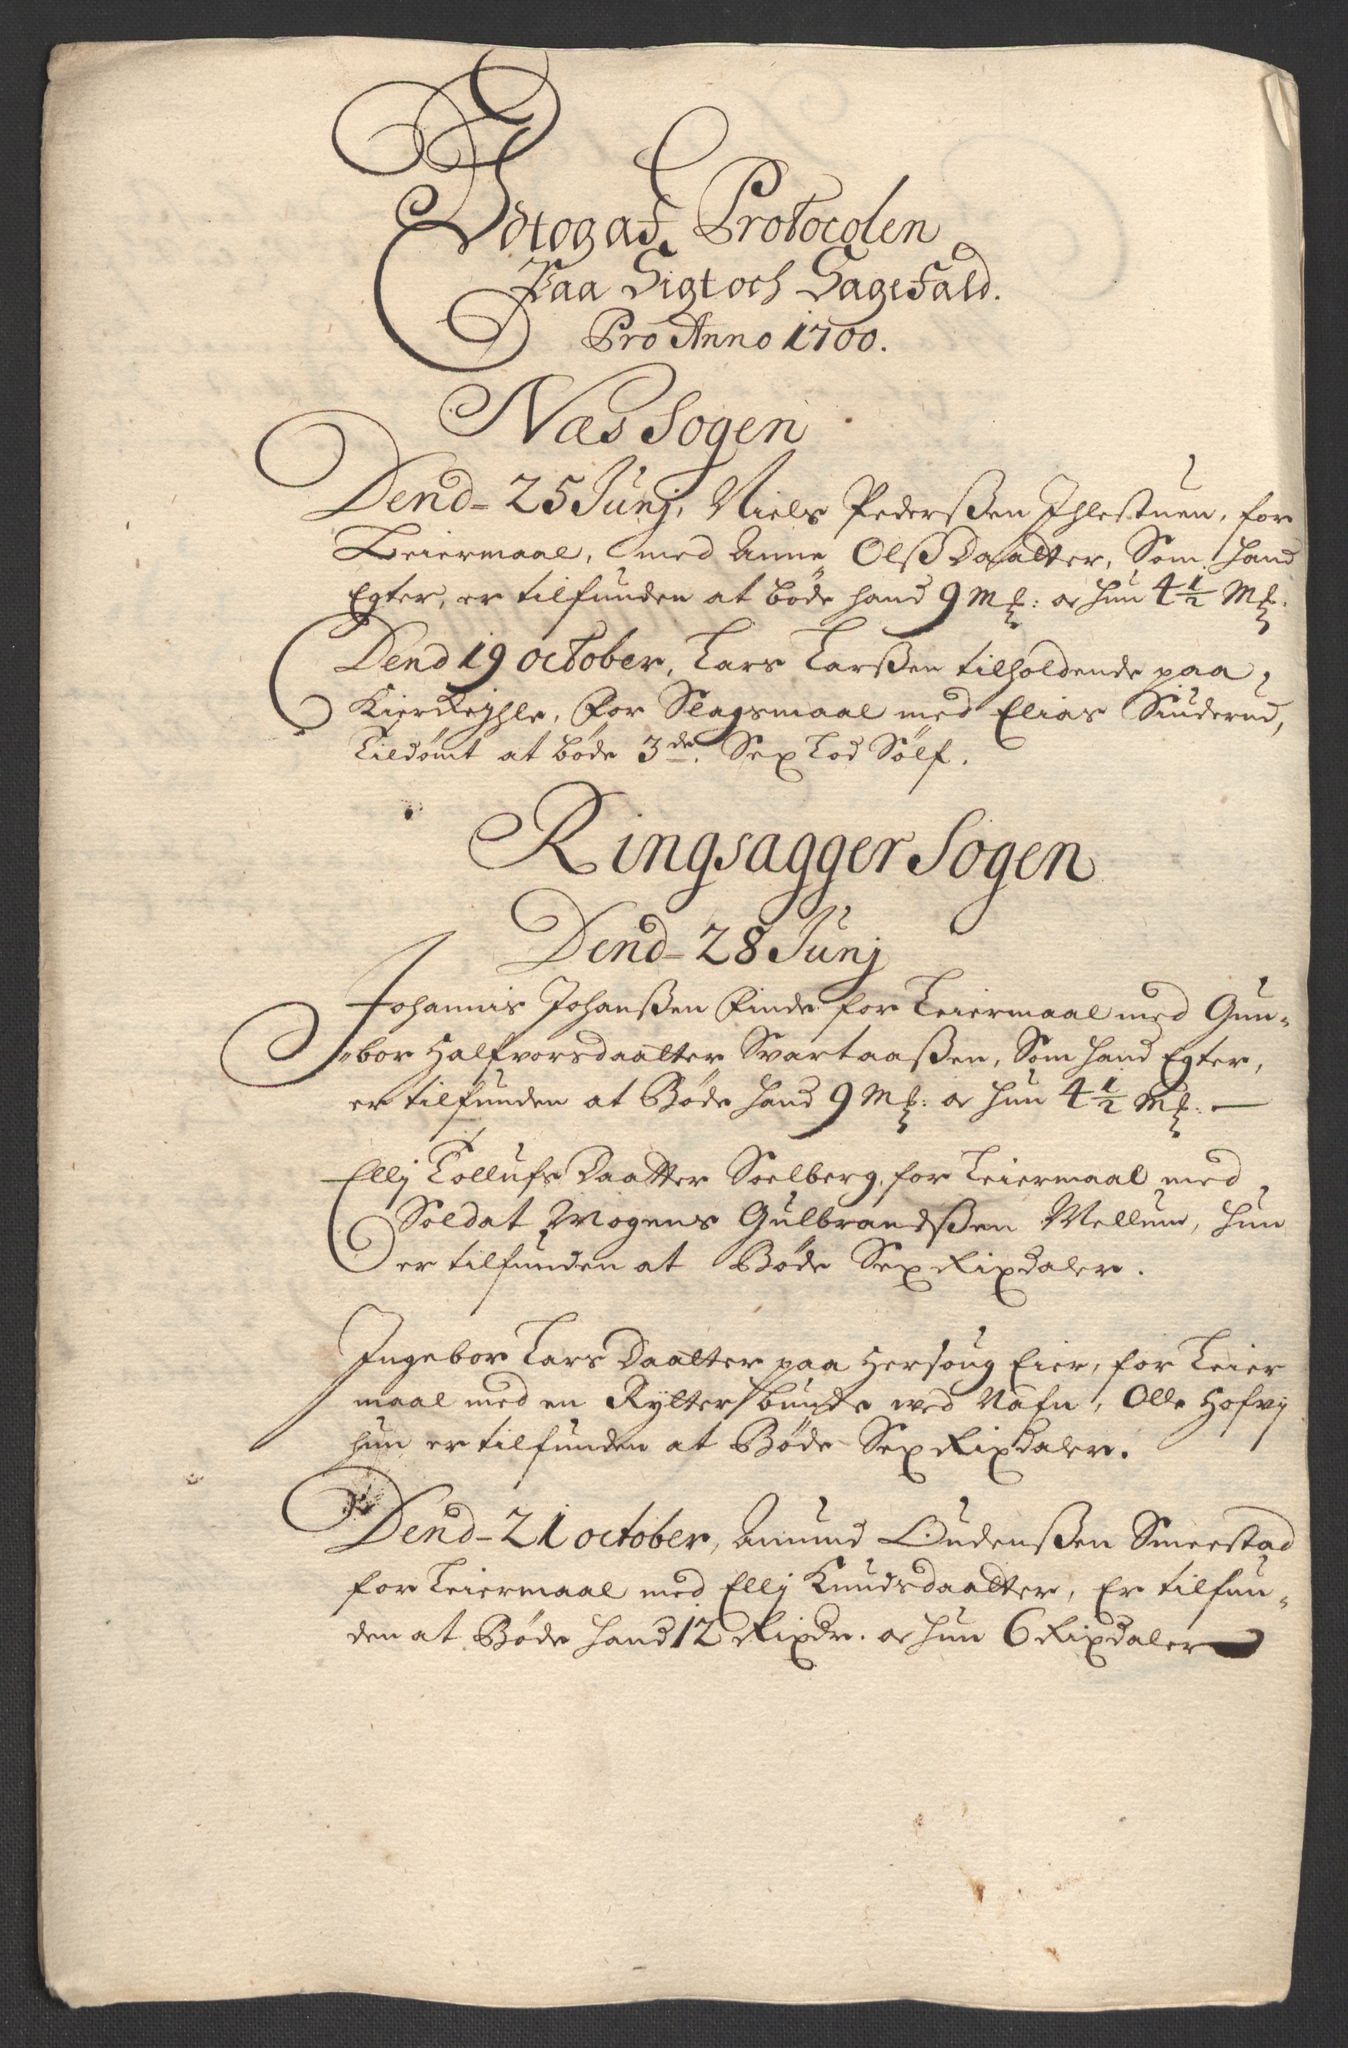 Vdtog af Protocolen
Paa Sigt och Sagefald.
Pro Anno 1700.
Næs Sogen
Dend 25 Junj, Niels Pederßen Ihlestuen, for
Leiermaal, med Anne Olß Daatter, Som hand
Egter, er tilfunden at bøde hand 9 Mk: oc hun 4½ Mk:
Dend 19 october, Lars Larßen tilholdende paa
Kierckeyhle, for Slagsmaal med Elias Sinderud,
Tildømt at bøde 3de Sex Lod Sølf.
Ringsagger Sogen
Dend 28 Junj
Johannis Johanßen Finde for Leiermaal med Gun-
bor Halfvorsdaatter Svartaaßen, Som hand Egter,
er tilfunden at Bøde hand 9 Mk: oc hun 4½ Mk:
Ellj Tollufs Daatter Soelberg, for Leiermaal med
Soldat Mogens Gulbrandßen Mellum, hun
er tilfunden at Bøde Sex Rixdaler.
Ingebor Lars Daatter paa Hersoug Eier, for Leier
maal med en Rytter bunde ved Nafn, Olle Hofvj
hun er tilfunden at Bøde Sex Rixdaler.
Dend 21 october, Amund Oudenßen Smestad
for Leiermaal med Ellj Knudsdaatter, Er tilfun-
den at Bøde hand 12 Rixdr. oc hun 6 Rixdaler